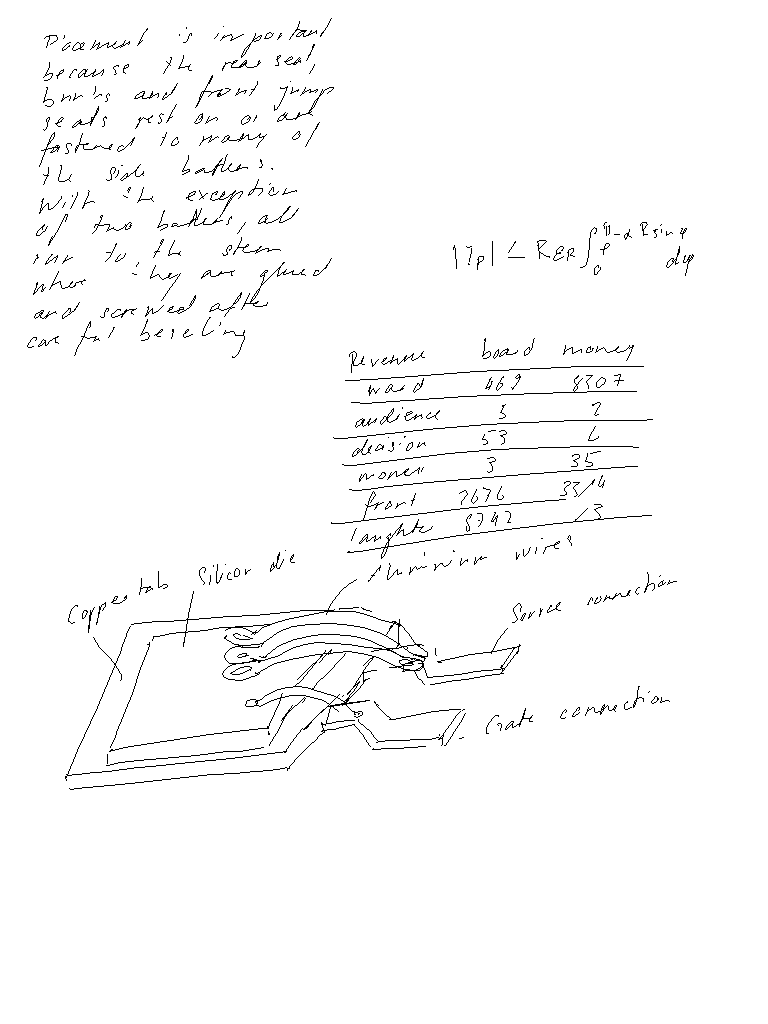 Placement is important
because the rear seat,
bunks and front jump
seats rest on or are
fastened to many of
the side battens.
With the exception
of two battens, all
run to the stem
where they are glued
and screwed after
careful beveling
|I_ρ| ≤ Rε_R ∫_0^{π-α} e^{R sin φ} dφ
Revenue board money
ward 469 8307
audience 5 2
decision 53 6
money 3 35
front 7676 33/4
laughter 8742 /3
Copper tab Silicon die Aluminium wires
Source connection
Gate connection